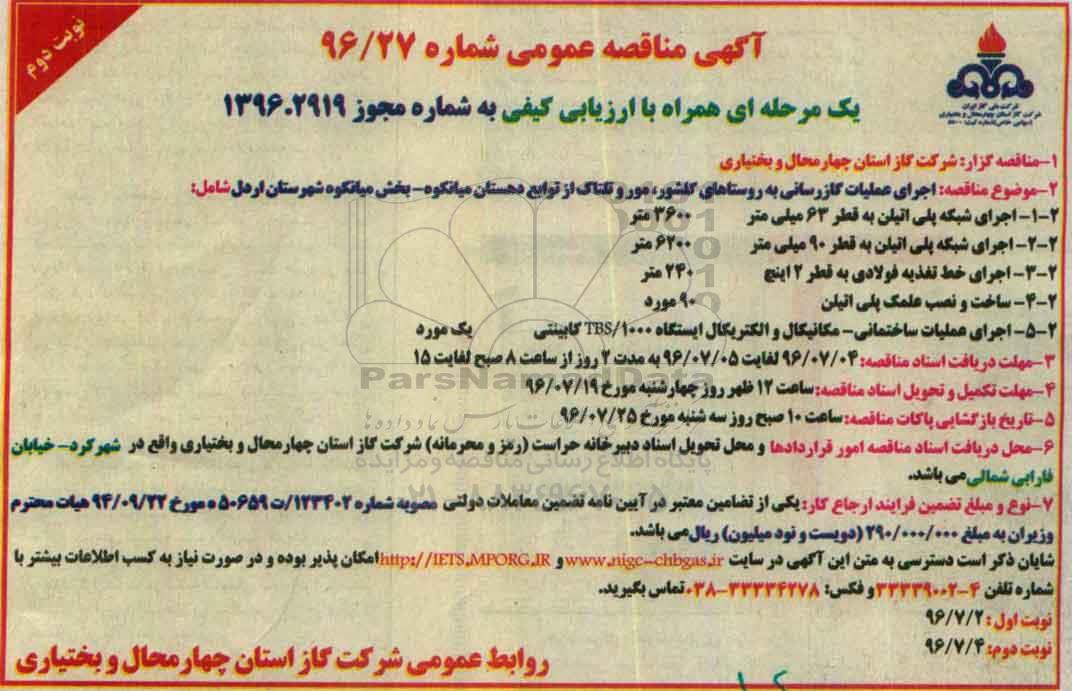 نوبت دوم
آگهی مناقصه عمومی شماره ۹۶/۲۷
یک مرحله ای همراه با ارزیابی کیفی به شماره مجوز ۱۳۹۶.۲۹۱۹
شرکت ملی گاز ایران
شرکت گاز استان چهارمحال و بختیاری
۱-مناقصه گزار: شرکت گاز استان چهارمحال و بختیاری
۲-موضوع مناقصه: اجرای عملیات گازرسانی به روستاهای گلشور، مور و تلتاک از توابع دهستان میانکوه-بخش میانکوه شهرستان اردل شامل:
۲-۱- اجرای شبکه پلی اتیلن به قطر ۶۳ میلی متر ۳۶۰۰ متر
۲-۲- اجرای شبکه پلی اتیلن به قطر ۹۰ میلی متر ۶۲۰۰ متر
۲-۳- اجرای خط تغذیه فولادی به قطر ۲ اینچ ۲۴۰ متر
۲-۴- ساخت و نصب علمک پلی اتیلن ۹۰ مورد
۲-۵- اجرای عملیات ساختمانی- مکانیکال و الکتریکال ایستگاه TBS/۱۰۰۰ کابینتی یک مورد
۳-مهلت دریافت اسناد مناقصه: ۹۶/۰۷/۰۴ لغایت ۹۶/۰۷/۰۵ به مدت ۲ روز از ساعت ۸ صبح لغایت ۱۵
۴-مهلت تکمیل و تحویل اسناد مناقصه: ساعت ۱۲ ظهر روز چهارشنبه مورخ ۹۶/۰۷/۱۹
۵-تاریخ بازگشایی پاکات مناقصه: ساعت ۱۰ صبح روز سه شنبه مورخ ۹۶/۰۷/۲۵
۶-محل دریافت اسناد مناقصه امور قراردادها و محل تحویل اسناد دبیرخانه حراست (رمز و محرمانه) شرکت گاز استان چهارمحال و بختیاری واقع در شهرکرد- خیابان
فارابی شمالی می باشد.
۷-نوع و مبلغ تضمین فرایند ارجاع کار: یکی از تضامین معتبر در آیین نامه تضمین معاملات دولتی مصوبه شماره ۱۲۳۴۰۲/ت ۵۰۶۵۹ ه مورخ ۹۴/۰۹/۲۲ هیات محترم
وزیران به مبلغ ۲۹۰/۰۰۰/۰۰۰ (دویست و نود میلیون) ریال می باشد.
شایان ذکر است دسترسی به متن این آگهی در سایت www.nigc-chbgas.ir و http://IETS.MPORG.IR امکان پذیر بوده و در صورت نیاز به کسب اطلاعات بیشتر با
شماره تلفن ۴-۳۳۳۳۹۰۰۲ و فکس: ۳۳۳۳۴۲۷۸-۰۳۸ تماس بگیرید.
نوبت اول: ۹۶/۷/۲
نوبت دوم: ۹۶/۷/۴
روابط عمومی شرکت گاز استان چهارمحال و بختیاری
ParsNamadData
پایگاه اطلاع رسانی مناقصه و مزایده